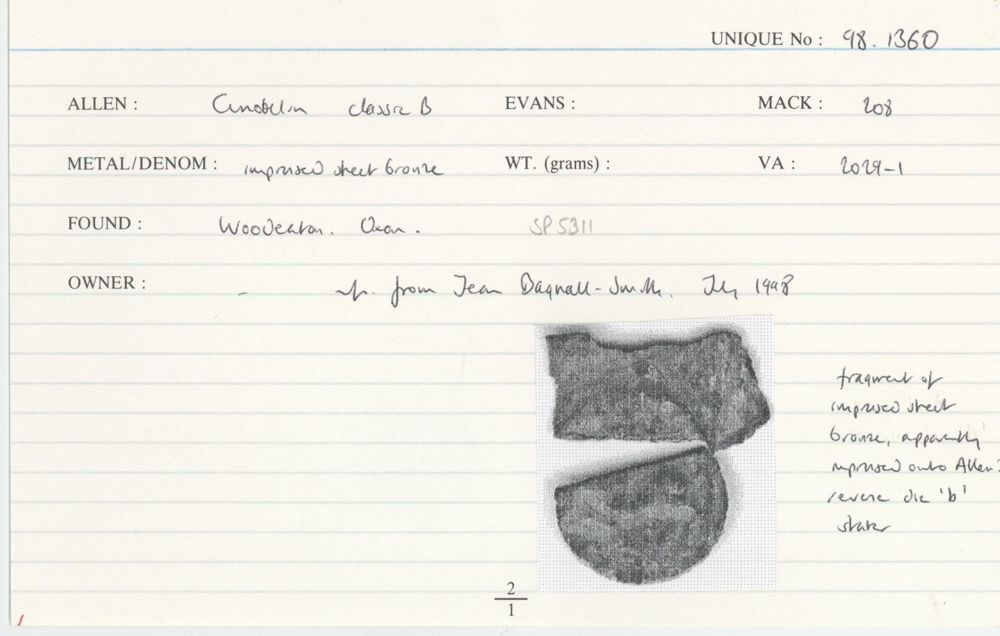 UNIQUE No : 98.1360
ALLEN : Cunobelin classic B EVANS : MACK : 208
METAL/DENOM : impressed sheet bronze WT. (grams) : VA : 2029-1
FOUND : Woodeaton. Oxon. SP 5311
OWNER : - inf. from Jean Bagnall-Smith, July 1998
fragment of
impressed sheet
bronze, apparently
impressed onto Allen
reverse die 'b'
stater
2
1